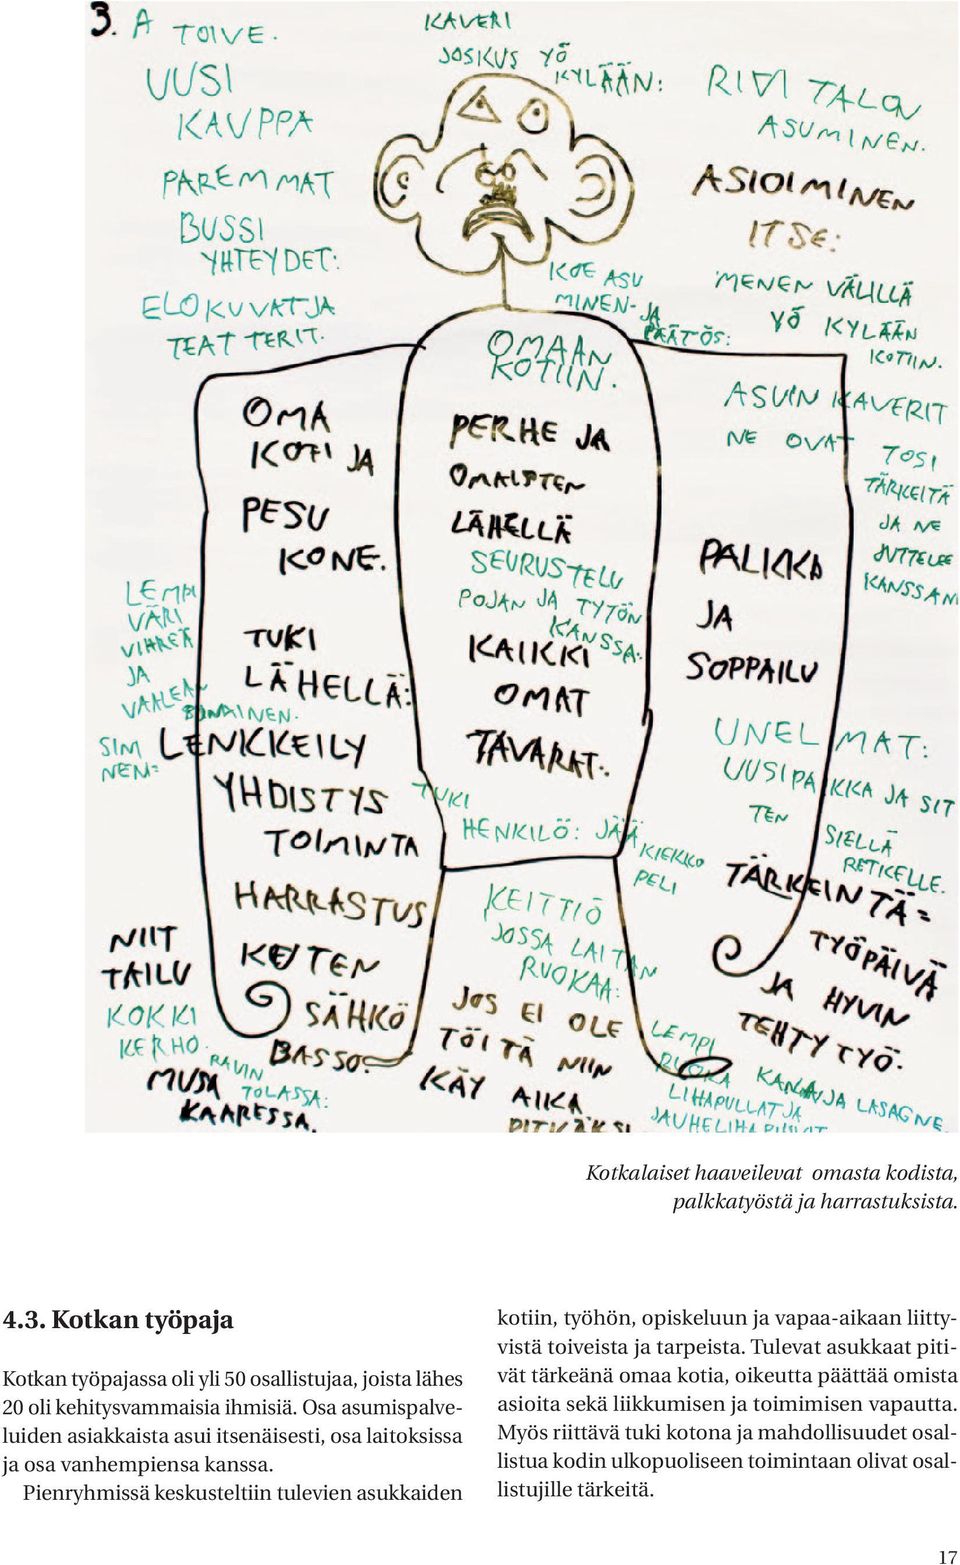 3. A TOIVE.
UUSI
KAUPPA
PAREMMAT
BUSSI
YHTEYDET:
ELOKUVAT JA
TEATTERIT.
KAVERI
JOSKUS YÖ
KYLÄÄN:
RIVITALON
ASUMINEN.
ASIOIMINEN
ITSE:
MENEN VÄLILLÄ
YÖ KYLÄÄN
KOTIIN.
KOE ASU
MINEN- JA
PÄÄTÖS:
OMAAN
KOTIIN.
ASUIN KAVERIT
NE OVAT TOSI
TÄRKEITÄ
JA NE
JUTTELEE
KANSSANI
OMA
KOTI JA
PESU
KONE.
TUKI
LÄHELLÄ:
LENKKEILY
YHDISTYS
TOIMINTA
HARRASTUS
KEITEN
SÄHKÖ
BASSO.
PERHE JA
OMAISTEN
LÄHELLÄ
SEURUSTELU
POJAN JA TYTÖN
KANSSA:
KAIKKI
OMAT
TAVARAT:
TUKI
HENKILÖ: JÄÄ
KIEKKO
PELI
PALKKA
JA
SOPPAILU
UNELMAT:
UUSI PAIKKA JA SIT
TEN SIELLÄ
RETKELLE.
TÄRKEIN TÄ=
TYÖPÄIVÄ
JA HYVIN
TEHTY TYÖ.
LEMPI
VÄRI
VIHREÄ
JA
VAALEAN
PUNAINEN.
SINI
NEN=
NIIT
TAILU
KOKKI
KERHO.
RAVIN
TOLASSA:
MUSA
KAARESSA.
KEITTIÖ
JOSSA LAITAN
RUOKAA:
JOS EI OLE
TÖITÄ NIIN
KÄY AIKA
PITKÄKSI
LEMPI
RUOKA KANA JA LASAGNE.
LIHAPULLAT JA
Kotkalaiset haaveilevat omasta kodista,
palkkatyöstä ja harrastuksista.
4.3. Kotkan työpaja
Kotkan työpajassa oli yli 50 osallistujaa, joista lähes
20 oli kehitysvammaisia ihmisiä. Osa asumispalve-
luiden asiakkaista asui itsenäisesti, osa laitoksissa
ja osa vanhempiensa kanssa.
Pienryhmissä keskusteltiin tulevien asukkaiden
kotiin, työhön, opiskeluun ja vapaa-aikaan liitty-
vistä toiveista ja tarpeista. Tulevat asukkaat piti-
vät tärkeänä omaa kotia, oikeutta päättää omista
asioita sekä liikkumisen ja toimimisen vapautta.
Myös riittävä tuki kotona ja mahdollisuudet osal-
listua kodin ulkopuoliseen toimintaan olivat osal-
listujille tärkeitä.
17